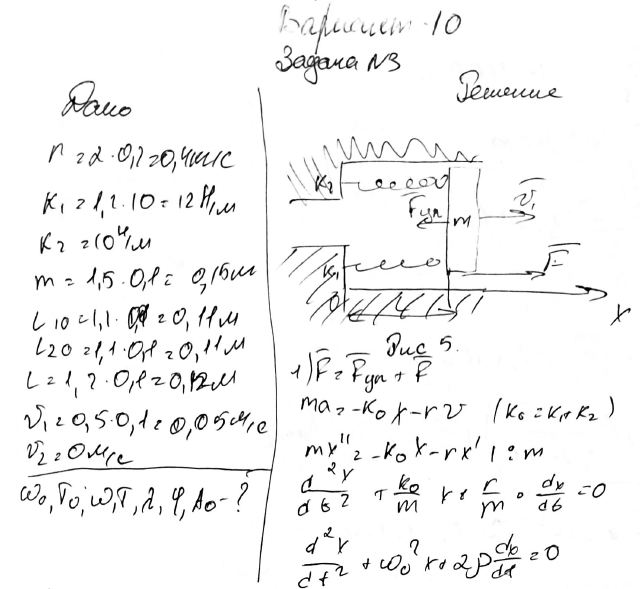 Вариант 10
Задача №3
Дано
r = 2 · 0,2 = 0,4 кг/с
K₁ = 1,2 · 10 = 12 Н/м
K₂ = 10 Н/м
m = 1,5 · 0,1 = 0,15 м
L₁₀ = 1,1 · 0,1 = 0,11 м
L₂₀ = 1,1 · 0,1 = 0,11 м
L = 1,2 · 0,1 = 0,12 м
v₁ = 0,5 · 0,1 = 0,05 м/с
v₂ = 0 м/с
ω₀, T₀, ω, T, λ, φ, A₀ - ?
Решение
K₂
F̅упр
m
v̅₁
K₁
F̅
0
X
Рис 5.
1) F̅ = F̅упр + F̅
ma = -K₀x - rv (K₀ = K₁ + K₂)
mx'' = -K₀x - rx' | : m
d²x/dt² + k₀/m x + r/m · dx/dt = 0
d²x/dt² + ω₀² x + 2β dx/dt = 0